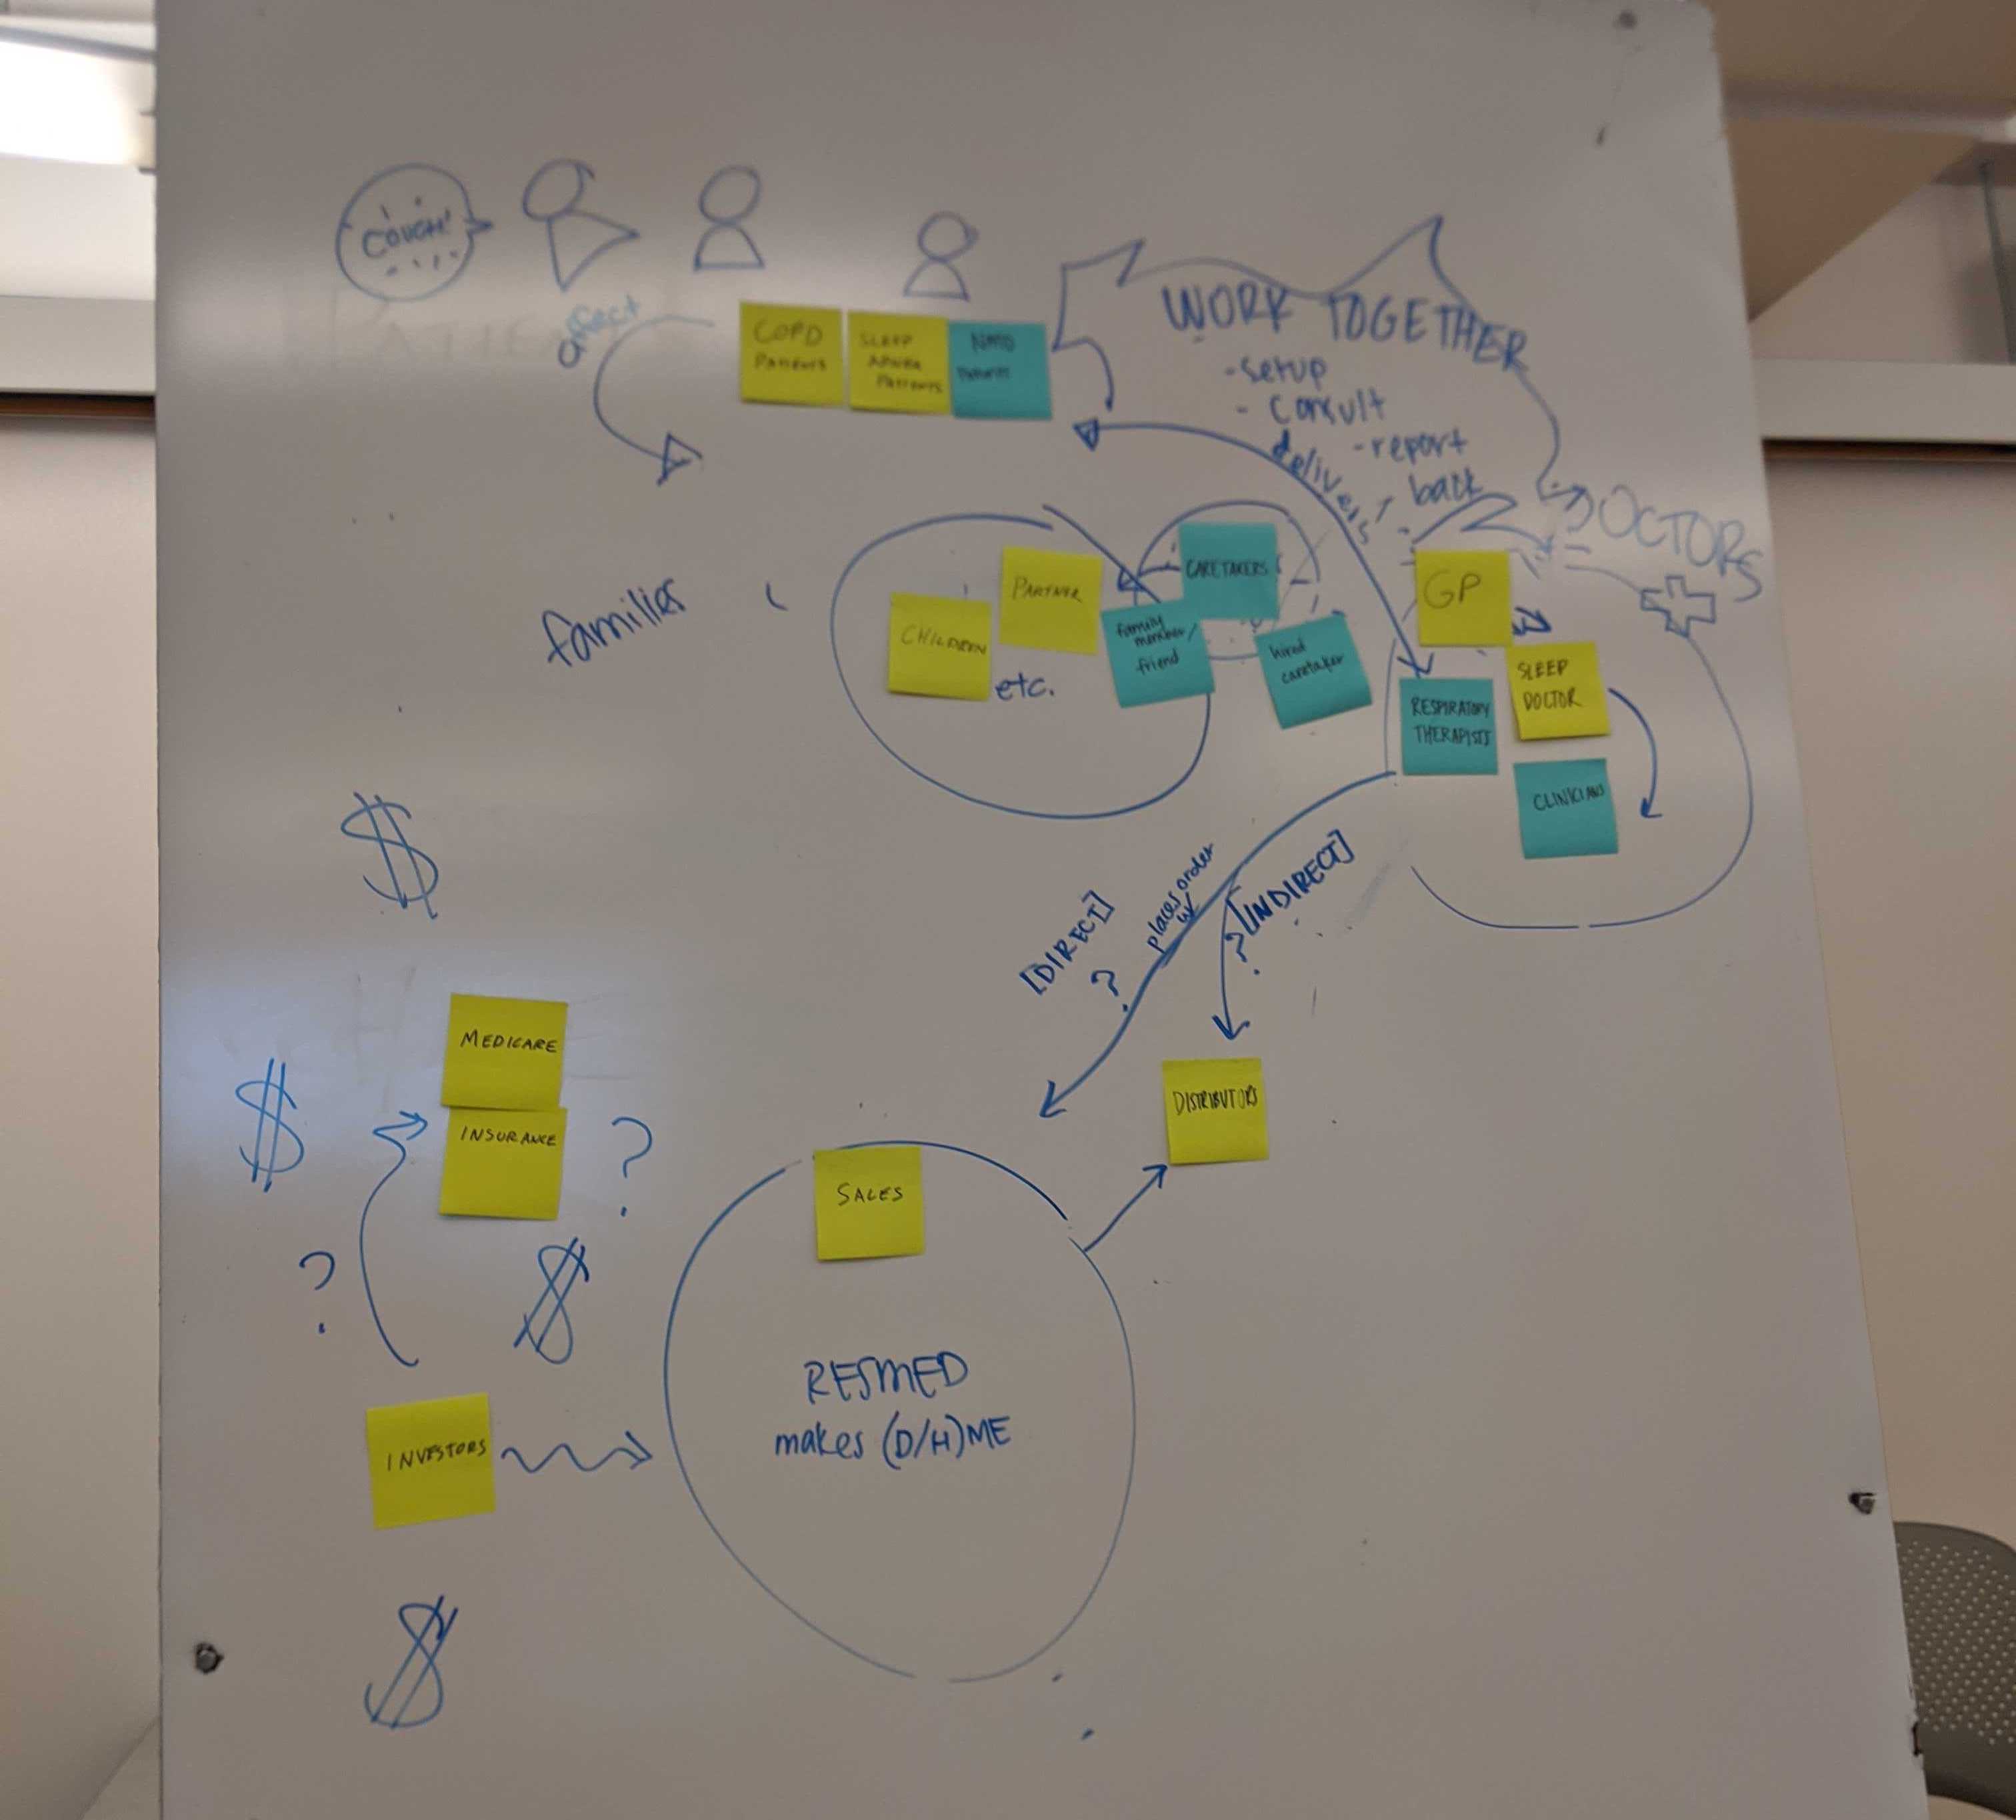 COUGH!
affect
COPD
PATIENTS
SLEEP
APNEA
PATIENTS
PATIENTS
WORK TOGETHER
-setup
- consult
-report
back
delivers
DOCTORS
families
CHILDREN
PARTNER
etc.
CARETAKERS
family
member/
friend
hired
caretaker
GP
SLEEP
DOCTOR
RESPIRATORY
THERAPISTS
CLINICIANS
[DIRECT]
?
places order
w/
[INDIRECT]
?
DISTRIBUTORS
$
MEDICARE
$
INSURANCE
?
?
$
SALES
RESMED
makes (D/H)ME
INVESTORS
$